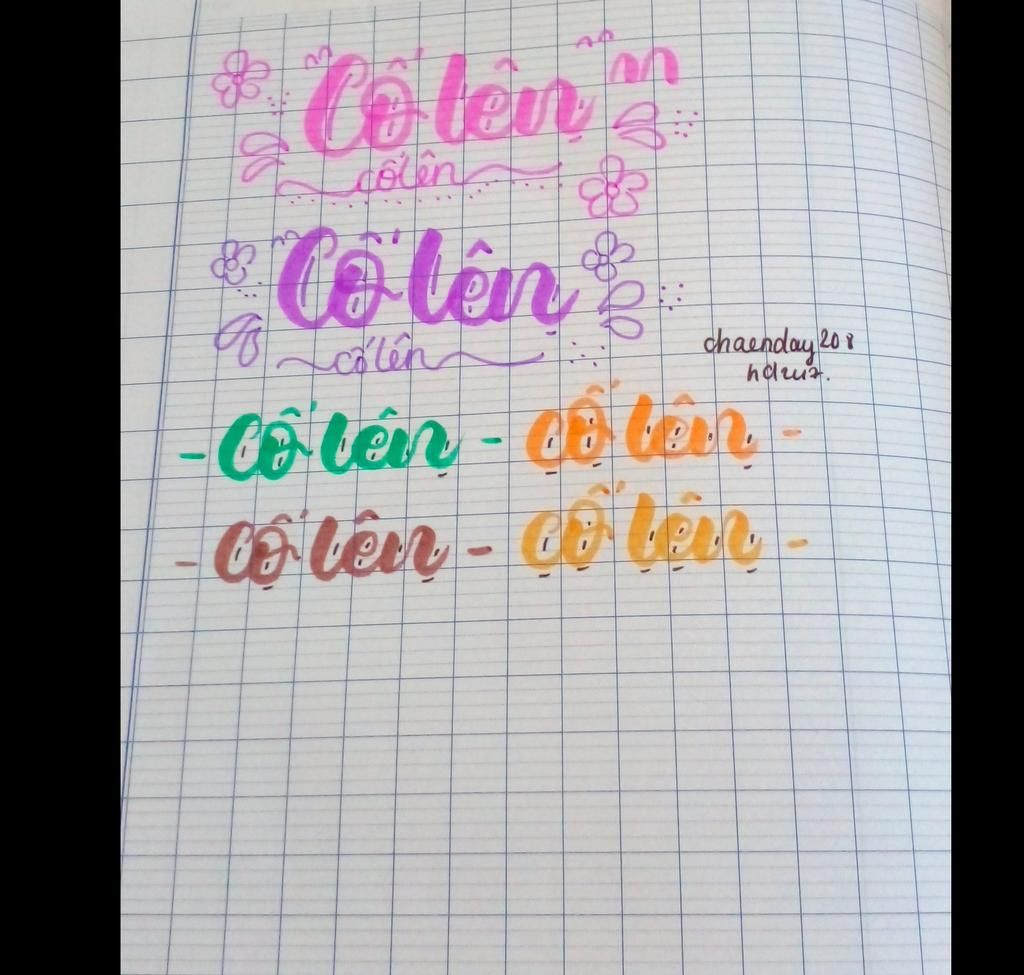 Cố lên
cố lên
Cố lên
cố lên
chaenday208
- cố lên - cố lên -
- cố lên - cố lên -